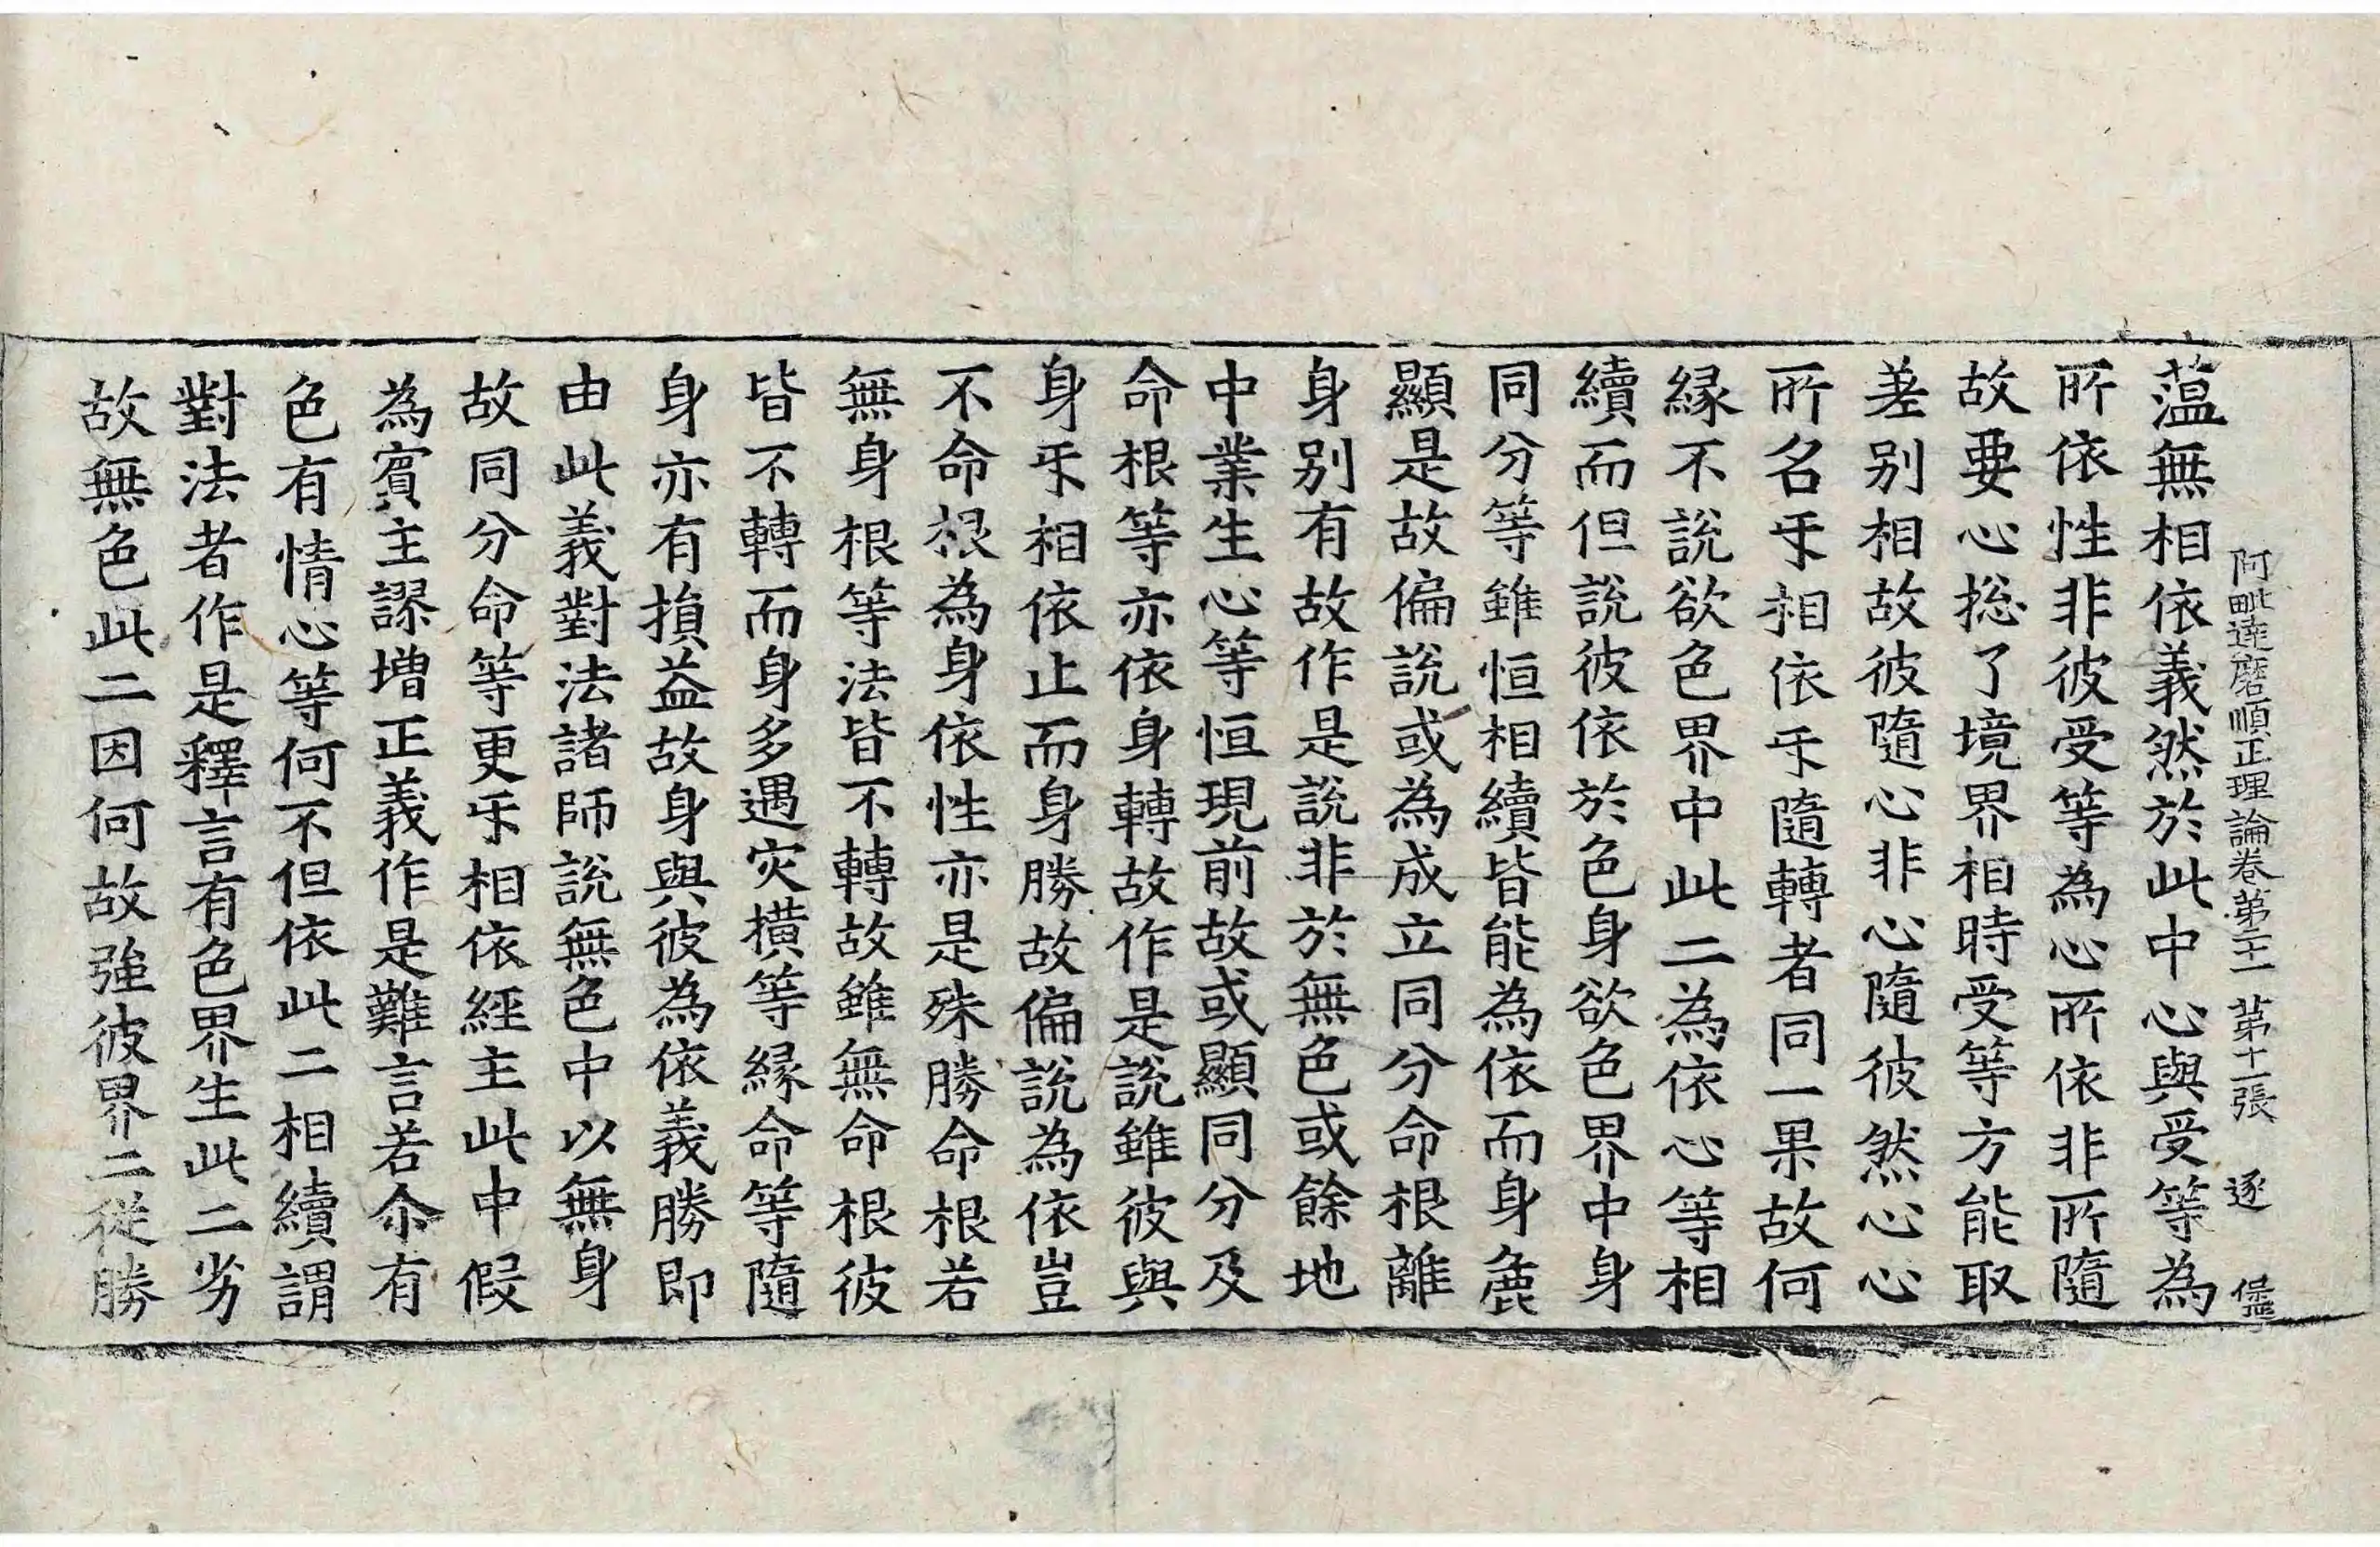 阿毗達磨順正理論卷第二十一 第十二張 逐
薀無相依義然於此中心與受等為
所依性非彼受等為心所依非所隨
故要心捴了境界相時受等方能取
差别相故彼隨心非心隨彼然心心
所名㸦相依㸦隨轉者同一果故何
緣不說欲色界中此二為依心等相
續而但說彼依於色身欲色界中身
同分等雖恒相續皆能為依而身麁
顯是故偏說或為成立同分命根離
身别有故作是說非於無色或餘地
中業生心等恒現前故或顯同分及
命根等亦依身轉故作是說雖彼與
身㸦相依止而身勝故偏說為依豈
不命根為身依性亦是殊勝命根若
無身根等法皆不轉故雖無命根彼
皆不轉而身多遇灾橫等緣命等隨
身亦有損益故身與彼為依義勝即
由此義對法諸師說無色中以無身
故同分命等更㸦相依經主此中假
為賓主謬增正義作是難言若尒有
色有情心等何不但依此二相續謂
對法者作是釋言有色界生此二劣
故無色此二因何故強彼界二從勝